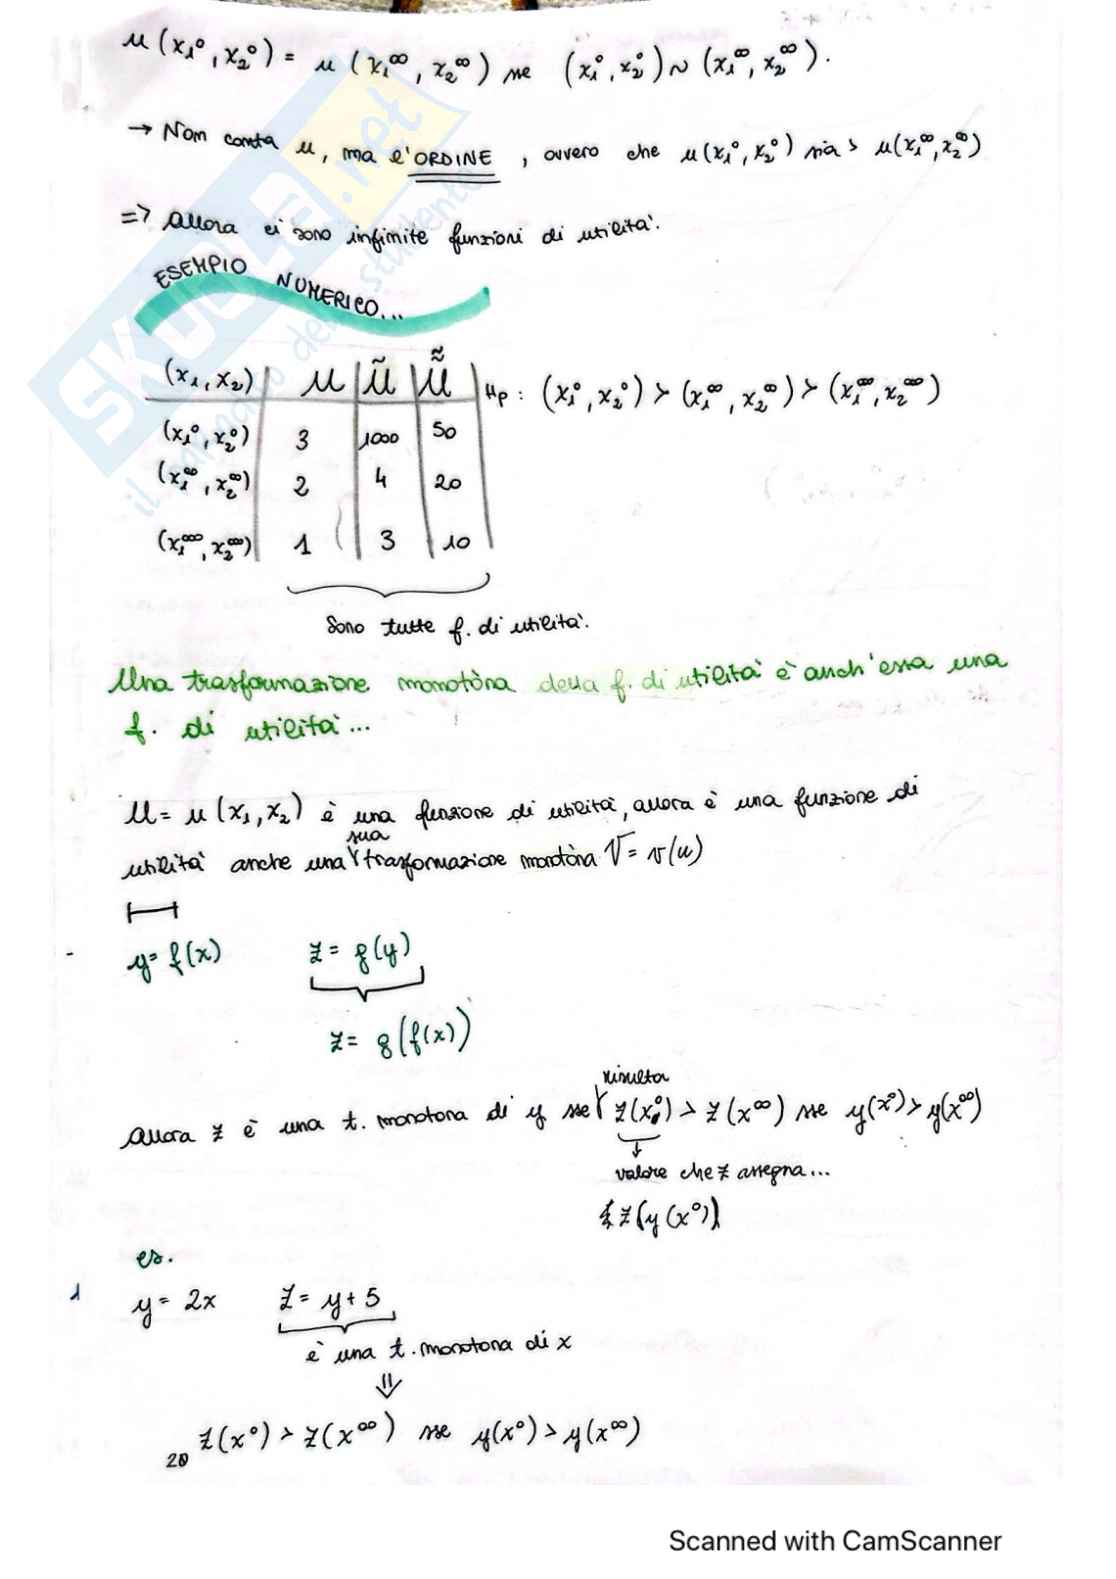 u(x₁°, x₂°) = u(x₁°°, x₂°°) sse (x₁°, x₂°) ~ (x₁°°, x₂°°).
→ Non conta u, ma l'ORDINE, ovvero che u(x₁°, x₂°) sia > u(x₁°°, x₂°°)
=> allora ci sono infinite funzioni di utilità.
ESEMPIO NUMERICO...
(x₁, x₂) | u | ũ | ũ̃ Hp: (x₁°, x₂°) > (x₁°°, x₂°°) > (x₁°°°, x₂°°°)
(x₁°, x₂°) 3 | 1000 | 50
(x₁°°, x₂°°) 2 | 4 | 20
(x₁°°°, x₂°°°) 1 | 3 | 10
Sono tutte f. di utilità.
Una trasformazione monotòna della f. di utilità è anch'essa una
f. di utilità...
U = u(x₁, x₂) è una funzione di utilità, allora è una funzione di
utilità anche una sua trasformazione monotòna V = v(u)
y = f(x) z = g(y)
z = g(f(x))
risulta
allora z è una t. monotona di y sse z(x°) > z(x°°) sse y(x°) > y(x°°)
valore che z assegna...
z(y(x°))
es.
1 y = 2x z = y + 5
è una t. monotona di x
⇓
z(x°) > z(x°°) sse y(x°) > y(x°°)
20
SKUOLA.net
il paradiso dello studente
Scanned with CamScanner